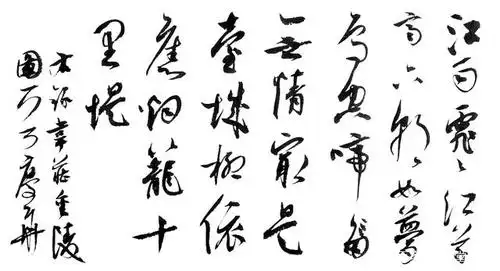 江雨霏霏江草
齊六朝如夢
鳥空啼
無情最是
臺城柳依
舊烟籠十
里堤
右錄韋莊金陵
圖